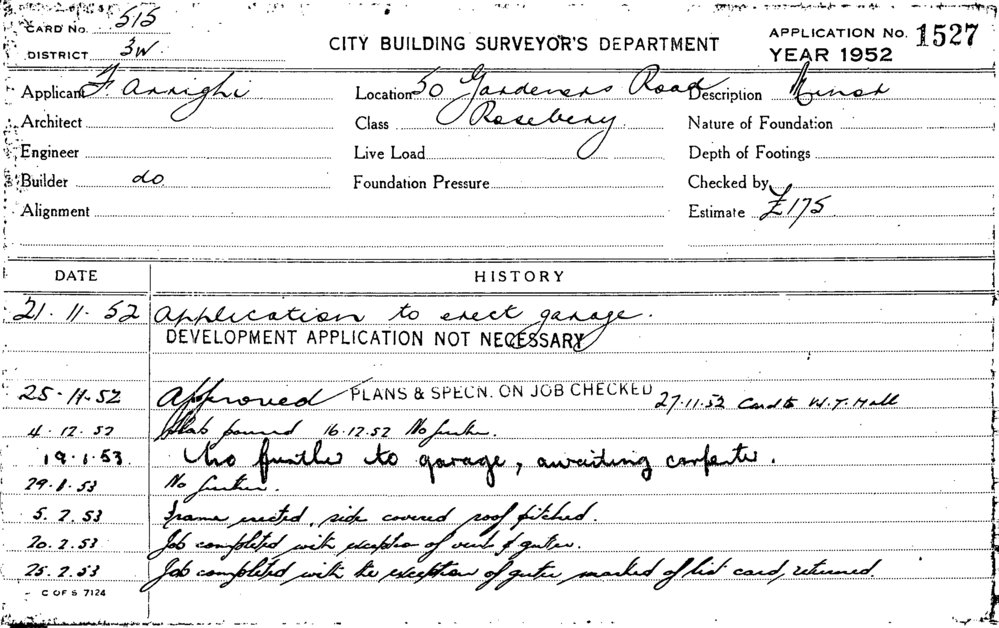 CARD NO. 515
DISTRICT 3W
CITY BUILDING SURVEYOR'S DEPARTMENT
APPLICATION NO. 1527
YEAR 1952
Applicant F Arrighi
Location 50 Gardeners Road
Description Minor
Architect
Class Rosebery
Nature of Foundation
Engineer
Live Load
Depth of Footings
Builder do
Foundation Pressure
Checked by
Alignment
Estimate £175
DATE HISTORY
21.11.52 Application to erect garage.
DEVELOPMENT APPLICATION NOT NECESSARY
25.11.52 Approved PLANS & SPECN. ON JOB CHECKED 27.11.52 Card to W.T. Hall
4.12.52 Slab poured 16.12.52 No further.
19.1.53 No further to garage, awaiting carpenter.
29.1.53 No further.
5.2.53 Frame erected, side covered roof pitched.
20.2.53 Job completed with exception of vent & gutter.
25.2.53 Job completed with the exception of gutter marked of list card, returned.
C OF S 7124